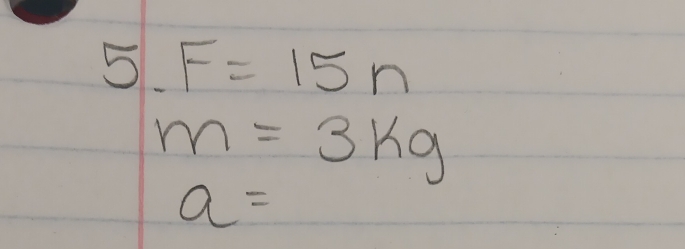 5. F = 15n
m = 3Kg
a =